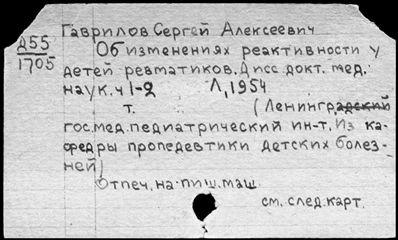 Д55
1705
Гаврилов Сергей Алексеевич
Об изменениях реактивности у
детей ревматиков. Дисс докт. мед.
наук. ч 1-2 Л, 1954
т. (Ленинградский
гос. мед. педиатрический ин-т. Из ка-
федры пропедевтики детских болез-
ней)
Отпеч. на пиш. маш.
см. след. карт.